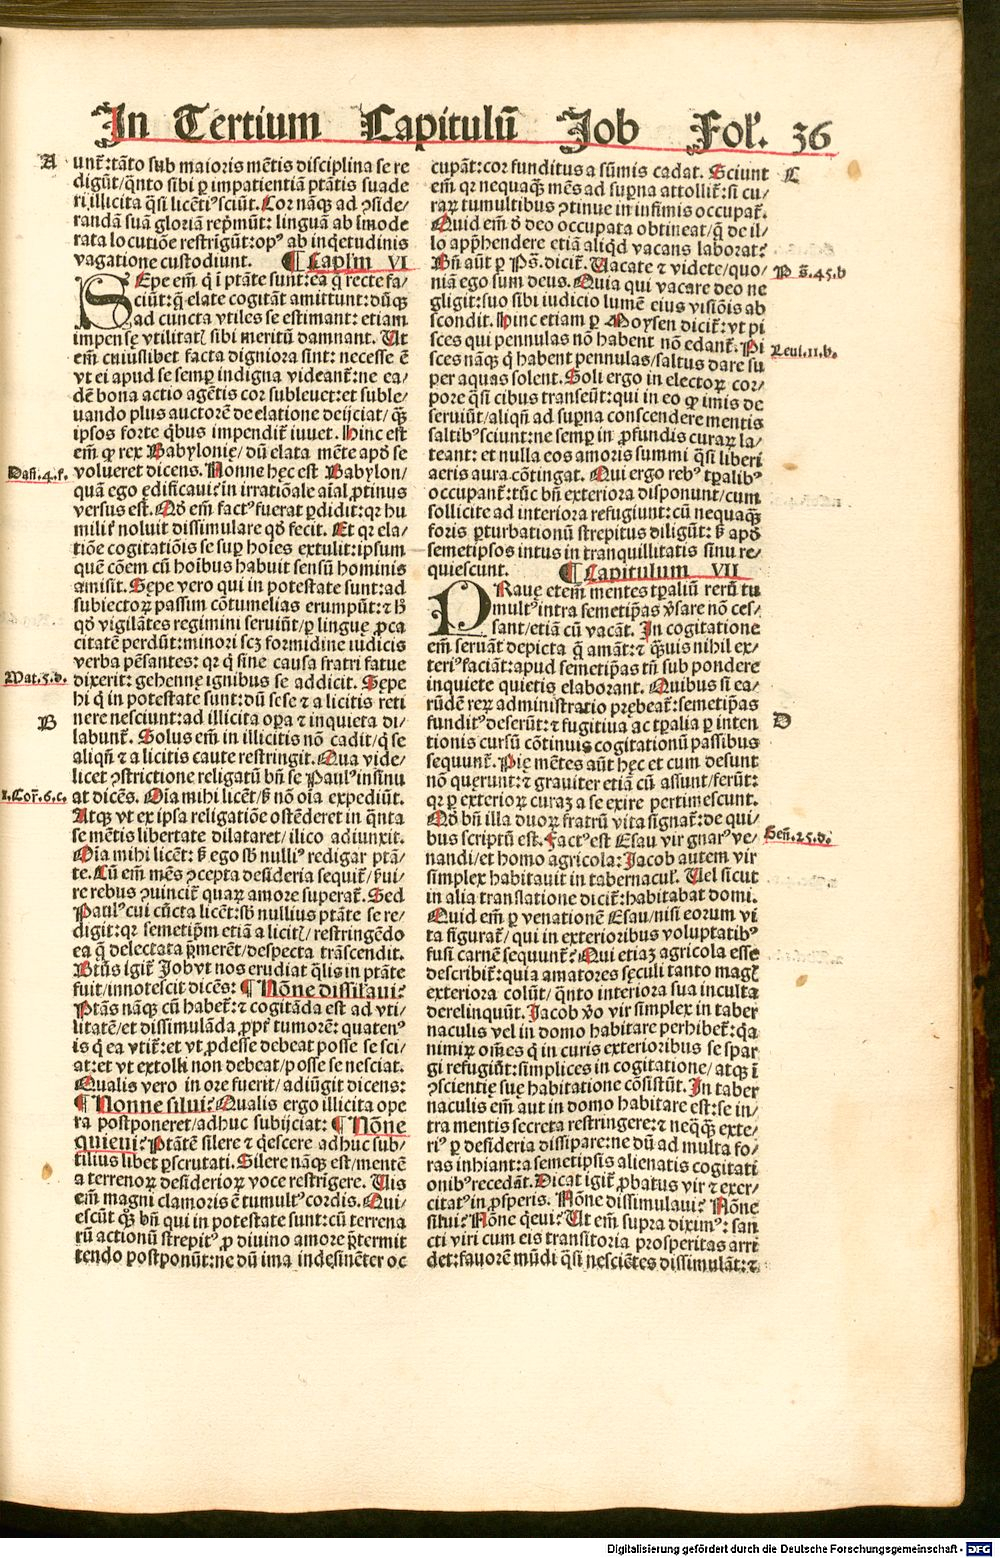 In Tertium Capitulū Job Fol. 36
A
unt̄:tāto sub maioris mētis disciplina se re
digūt/q̄nto sibi ꝑ impatientiā ptātis suade
ri illicita q̄si licētiꝰ sciūt. Cor nāqꝫ ad ꝯside/
randā suā gloriā rep̄mūt: linguā ab īmode
rata locutiōe restrīgūt: opꝰ ab inq̄etudinis
vagatione custodiunt. ¶ Capl'm VI
SEpe em̄ q̄ ī ptāte sunt: ea q̄ recte fa/
ciūt: q̄ elate cogitāt amittunt: dūqꝫ
ad cuncta vtiles se estimant: etiam
impensę vtilitatꝭ sibi meritū damnant. Ut
em̄ cuiuslibet facta digniora sint: necesse ē
vt ei apud se semꝑ indigna videant̄: ne ea/
dē bona actio agētis cor subleuet: et suble/
uando plus auctorē de elatione deijciat/qꝫ
ipsos forte q̄bus impendit̄ iuuet. Hinc est
em̄ ꝙ rex Babylonię/dū elata mēte apđ se
Dañ.4.f.
volueret dicens. Nonne hęc est Babylon/
quā ego ędificaui? in irratiōale aīal ꝓtinus
versus est. Qđ em̄ factꝰ fuerat ꝑdidit: qꝛ hu
milit̄ noluit dissimulare qđ fecit. Et qꝛ ela/
tiōe cogitatiōis se suꝑ hoīes extulit: ipsum
quē cōem cū hoibus habuit sensū hominis
amisit. Sępe vero qui in potestate sunt: ad
subiectoꝝ passim cōtumelias erumpūt: ⁊ hͦ
qđ vigilātes regimini seruiūt/ꝑ linguę ꝓca
citatē perdūt: minori scꝫ formidine iudicis
verba pēsantes: qꝛ q̄ sine causa fratri fatue
Mat.5.d.
dixerit: gehennę ignibus se addicit. Sępe
hi q̄ in potestate sunt: dū sese ⁊ a licitis reti
B
nere nesciunt: ad illicita oꝑa ⁊ inquieta di/
labunt̄. Solus em̄ in illicitis nō cadit/q̄ se
aliqn̄ ⁊ a licitis caute restringit. Qua vide/
licet ꝯstrictione religatū bn̄ se Paulꝰ insinu
1.Cor̄.6.c.
at dicēs. Oīa mihi licēt/sꝫ nō oīa expediūt.
Atqꝫ vt ex ipsa religatiōe ostēderet in q̄nta
se mētis libertate dilataret/ilico adiunxit.
Oīa mihi licēt: sꝫ ego sb̄ nulliꝰ redigar ptā/
te. Cū em̄ mēs ꝯcepta desideria sequit̄/ẜui/
re rebus ꝯuincit̄ quaꝝ amore superat̄. Sed
Paulꝰ cui cūcta licēt: sb̄ nullius ptāte se re/
digit: qꝛ semetip̄m etiā a licitꝭ/restringēdo
ea q̄ delectata p̄merēt/despecta trāscendit.
Btūs igit̄ Job vt nos erudiat q̄lis in ptāte
fuit/innotescit dicēs: ¶ Nōne dissil̄aui?
Ptās nāqꝫ cū habet̄: ⁊ cogitāda est ad vti/
litatē/et dissimulāda ꝓpt̄ tumorē: quatenꝰ
is q̄ ea vtit̄: et vt ꝓdesse debeat posse se sci/
at: et vt extolli non debeat/posse se nesciat.
Qualis vero in ore fuerit/adiūgit dicens:
¶ Nonne silui? Qualis ergo illicita ope
ra postponeret/adhuc subijciat: ¶ Nōne
quieui? Ptātē silere ⁊ q̄escere adhuc sub/
tilius libet ꝑscrutati. Silere nāqꝫ est/mentē
a terrenoꝝ desiderioꝝ voce restrīgere. Uis
em̄ magni clamoris ē tumultꝰ cordis. Qui/
escūt qꝫ bn̄ qui in potestate sunt: cū terrena
rū actionū strepitꝰ ꝓ diuino amore p̄termit
tendo postponūt: ne dū ima indesinēter oc
cupāt: cor funditus a sūmis cadat. Sciunt
C
em̄ qꝛ nequaqꝫ mēs ad suꝑna attollit̄: si cu/
raꝝ tumultibus ꝯtinue in infimis occupat̄.
Quid em̄ đ deo occupata obtineat/q̄ de il/
lo app̄hendere etiā aliqđ vacans laborat?
Bn̄ aūt ꝑ Ps̄. dicit̄. Uacate ⁊ videte/quo/
P s̄.45.b
niā ego sum deus. Quia qui vacare deo ne
gligit: suo sibi iudicio lumē eius visiōis ab
scondit. Hinc etiam ꝑ Moysen dicit̄: vt pi
sces qui pennulas nō habent nō edant̄. Pi
Leui.11.b.
sces nāqꝫ q̄ habent pennulas/saltus dare su
per aquas solent. Soli ergo in electoꝝ cor/
pore q̄si cibus transeūt: qui in eo ꝙ imis de
seruiūt/aliqn̄ ad suꝑna conscendere mentis
saltibꝰ sciunt: ne semꝑ in ꝓfundis curaꝝ la/
teant: et nulla eos amoris summi q̄si liberi
aeris aura cōtingat. Qui ergo rebꝰ tꝑalibꝰ
occupant̄: tūc bn̄ exteriora disponunt/cum
sollicite ad interiora refugiunt: cū nequaqꝫ
foris ꝑturbationū strepitus diligūt: sꝫ apđ
semetipsos intus in tranquillitatis sinu re/
quiescunt. ¶ Capitulum VII
PRauę etem̄ mentes tꝑaliū rerū tu
multꝰ intra semetip̄as v̄sare nō ces/
sant/etiā cū vacāt. In cogitatione
em̄ seruāt depicta q̄ amāt: ⁊ qꝫuis nihil ex/
teriꝰ faciāt: apud semetip̄as tn̄ sub pondere
inquiete quietis elaborant. Quibus si ea/
rūdē reꝝ administratio prębeat̄: semetip̄as
D
funditꝰ deserūt: ⁊ fugitiua ac tꝑalia ꝑ inten
tionis cursū cōtinuis cogitationū passibus
sequunt̄. Pię mētes aūt hęc et cum desunt
nō quęrunt: ⁊ grauiter etiā cū assunt/ferūt:
qꝛ ꝑ exterioꝝ curaꝫ a se exire pertimescunt.
Qđ bn̄ illa duoꝝ fratrū vita signat̄: de qui/
bus scriptū est. Factꝰ est Esau vir gnarꝰ ve/
Geñ.25.d.
nandi/et homo agricola: Jacob autem vir
simplex habitauit in tabernacul̄. Uel sicut
in alia translatione dicit̄: habitabat domi.
Quid em̄ ꝑ venationē Esau/nisi eorum vi
ta figurat̄/qui in exterioribus voluptatibꝰ
fusi carnē sequunt̄? Qui etiaꝫ agricola esse
describit̄: quia amatores sęculi tanto magꝭ
exteriora colūt/q̄nto interiora sua inculta
derelinquūt. Jacob v̄o vir simplex in taber
naculis vel in domo habitare perhibet̄: q̄a
nimiꝝ om̄es q̄ in curis exterioribus se spar
gi refugiūt: simplices in cogitatione/atqꝫ ī
ꝯscientię suę habitatione cōsistūt. In taber
naculis em̄ aut in domo habitare est: se in/
tra mentis secreta restringere: ⁊ neq̄qꝫ exte/
riꝰ ꝑ desideria dissipare: ne dū ad multa fo/
ras inhiant: a semetipsis alienatis cogitati
onibꝰ recedāt. Dicat igit̄ ꝓbatus vir ⁊ exer/
citatꝰ in ꝓsperis. Nōne dissimulaui? Nōne
silui? Nōne q̄eui? Ut em̄ supra diximꝰ: san
cti viri cum eis transitoria prosperitas arri
det: fauorē mūdi q̄si nesciētes dissimulāt: ⁊
Digitalisierung gefördert durch die Deutsche Forschungsgemeinschaft - DFG